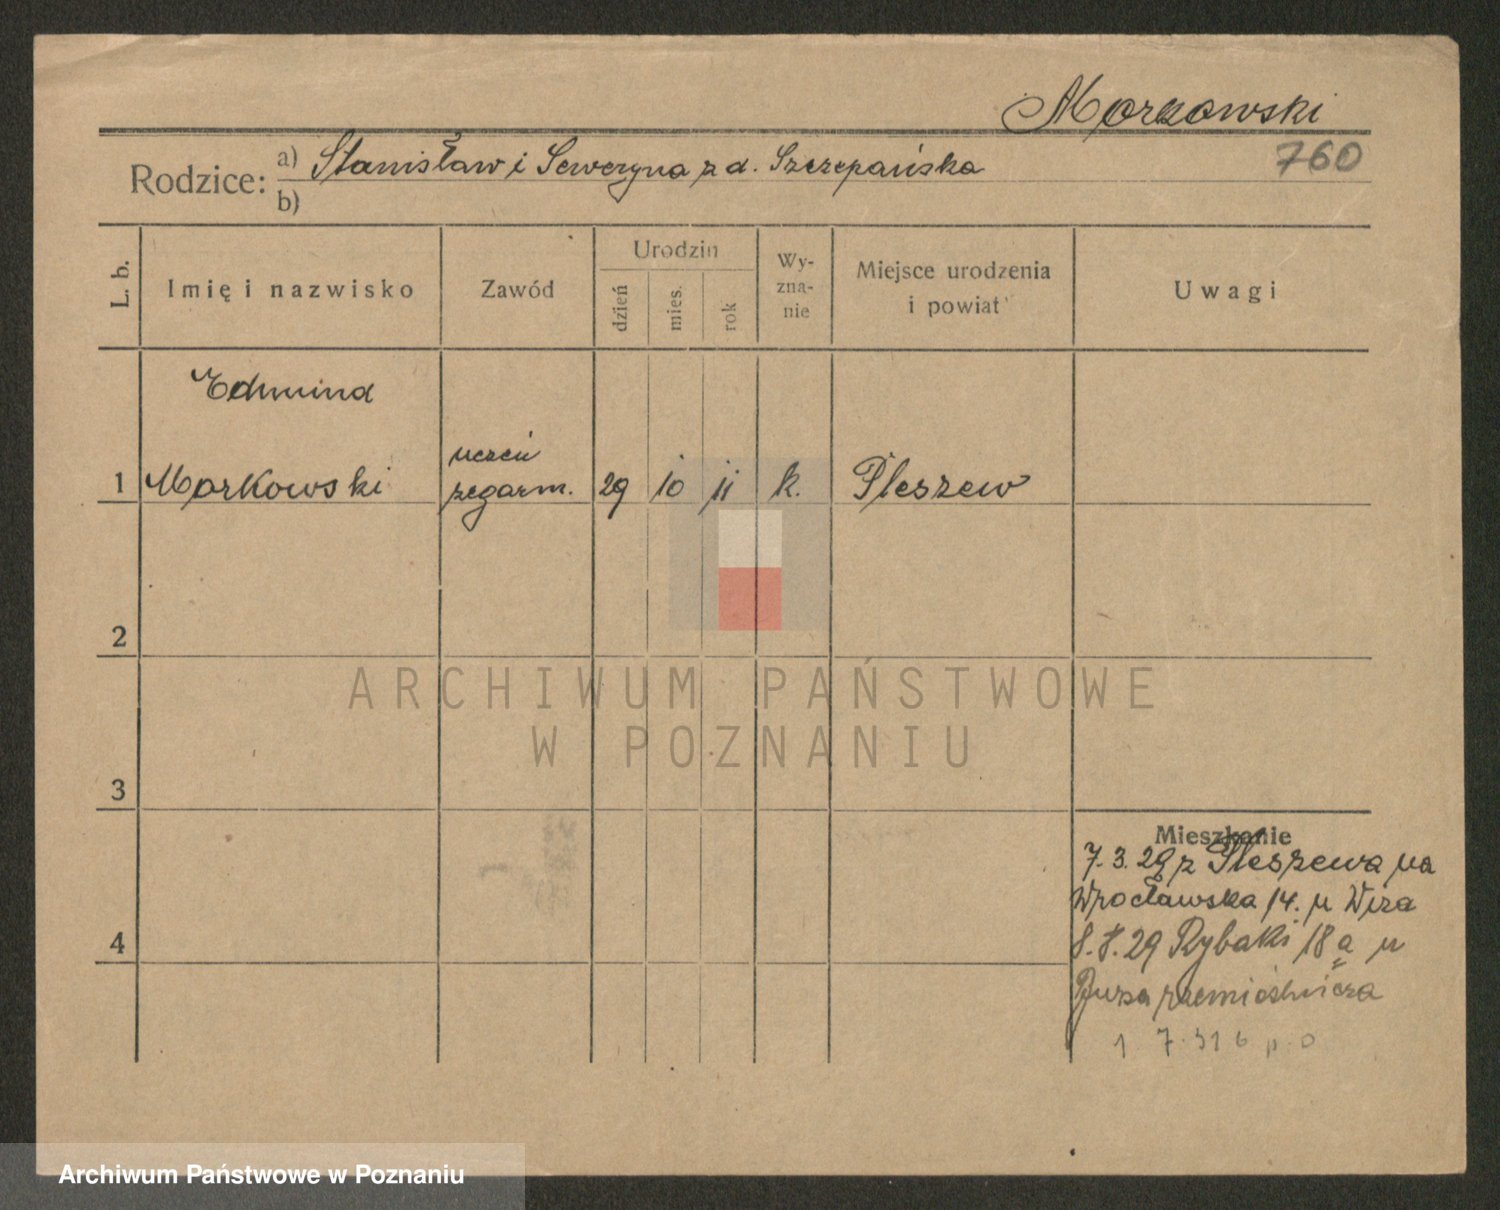 Markowski
760
Rodzice: a) Stanisław i Seweryna z d. Szczepańska
b)
L. b.
Imię i nazwisko
Zawód
Urodzin
dzień
mies.
rok
Wy-
zna-
nie
Miejsce urodzenia
i powiat
Uwagi
Edmund
uczeń
1 Markowski zegarm. 29 10 11 k. Pleszew
2
ARCHIWUM PAŃSTWOWE
W POZNANIU
3
Mieszkanie
7.3.29 z Pleszewa na
Wrocławska 14. u
4
8.8.29 Rybaki 18a u
Bursa rzemieślnicza
1 7.31 b p. o
Archiwum Państwowe w Poznaniu